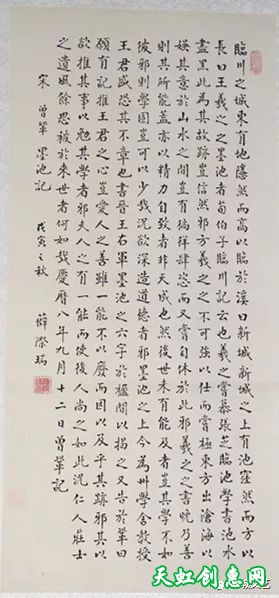 臨川之城東有地隱然而高以臨於溪曰新城新城之上有池窪然而方以
長曰王羲之之墨池者荀伯子臨川記云也羲之嘗慕張芝臨池學書池水
盡黑此為其故跡豈信然邪方羲之之不可強以仕而嘗極東方出滄海以
娛其意於山水之間豈有徜徉肆恣而又嘗自休於此邪羲之之書晚乃善
則其所能蓋亦以精力自致者非天成也然後世未有能及者豈其學不如
彼邪則學固豈可以少哉況欲深造道德者邪墨池之上今為州學舍教授
王君盛恐其不章也書晉王右軍墨池之六字於楹間以揭之又告於鞏曰
願有記推王君之心豈愛人之善雖一能不以廢而因以及乎其跡邪其以
欲推其事以勉其學者邪夫人之有一能而使後人尚之如此況仁人莊士
之遺風餘思被於來世者何如哉慶曆八年九月十二日曾鞏記
宋 曾鞏 墨池記 戊寅之秋 薛際
天虹创惠网